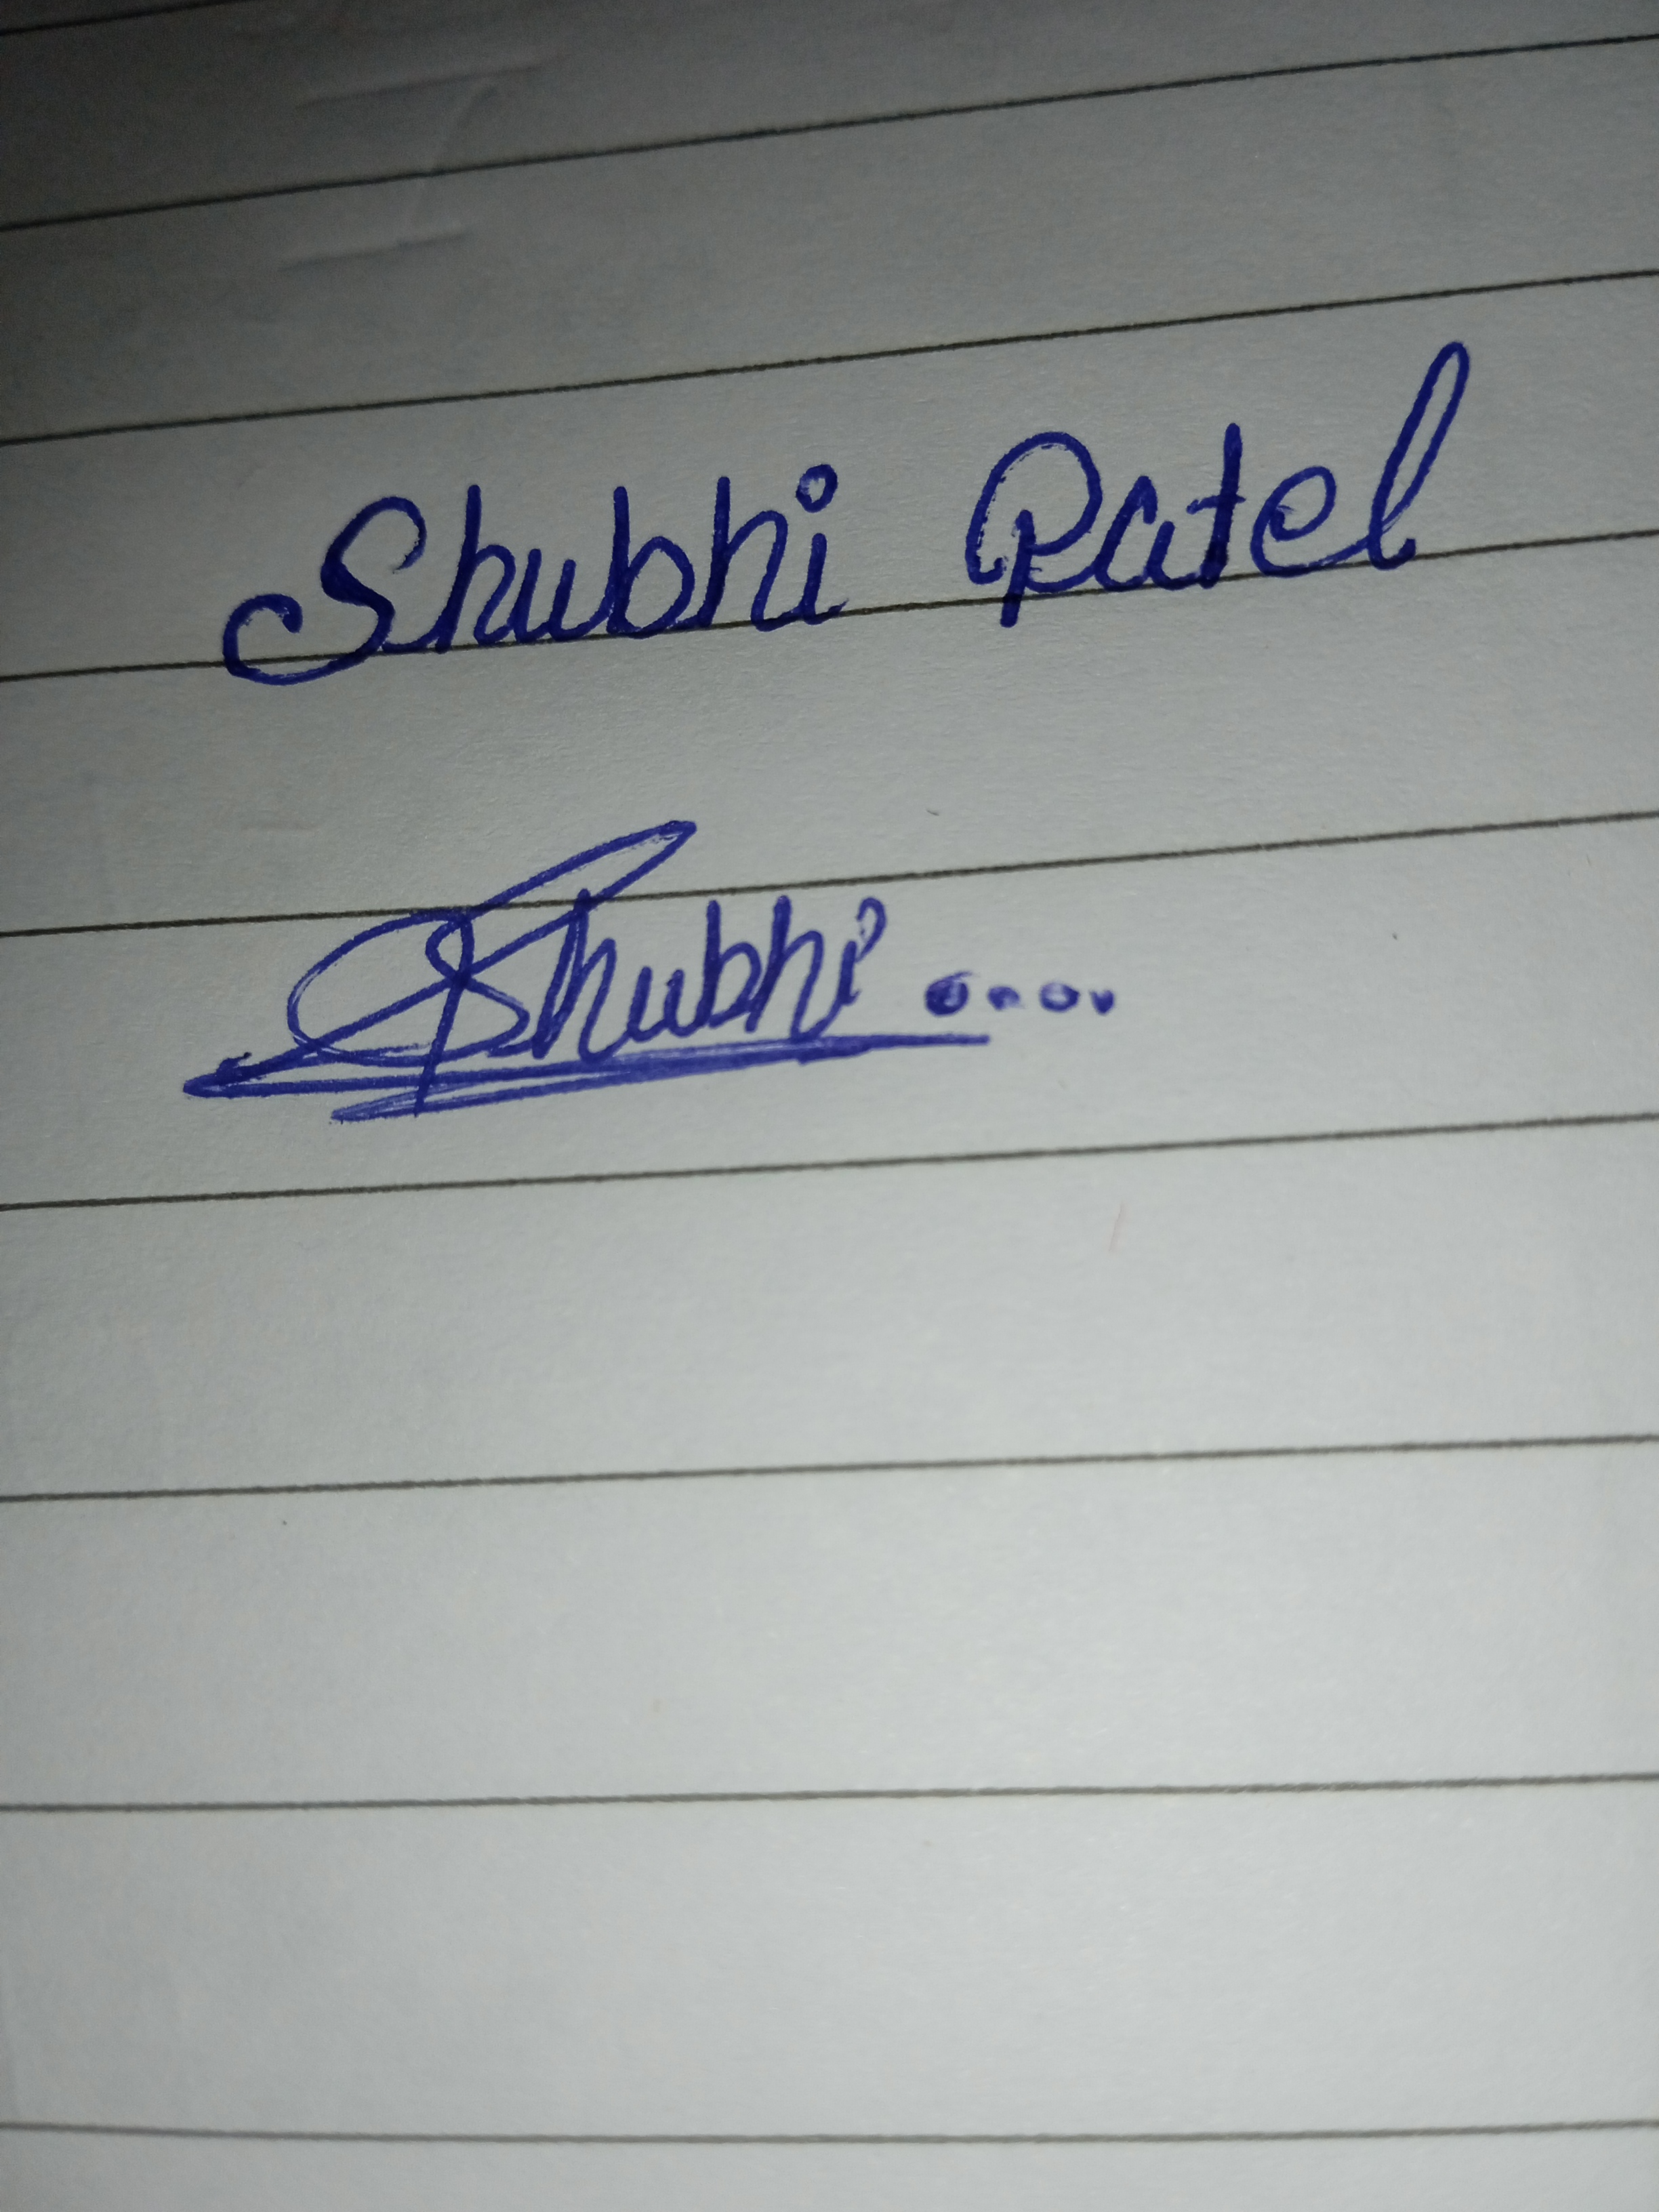 Shubhi Patel
Shubhi ....